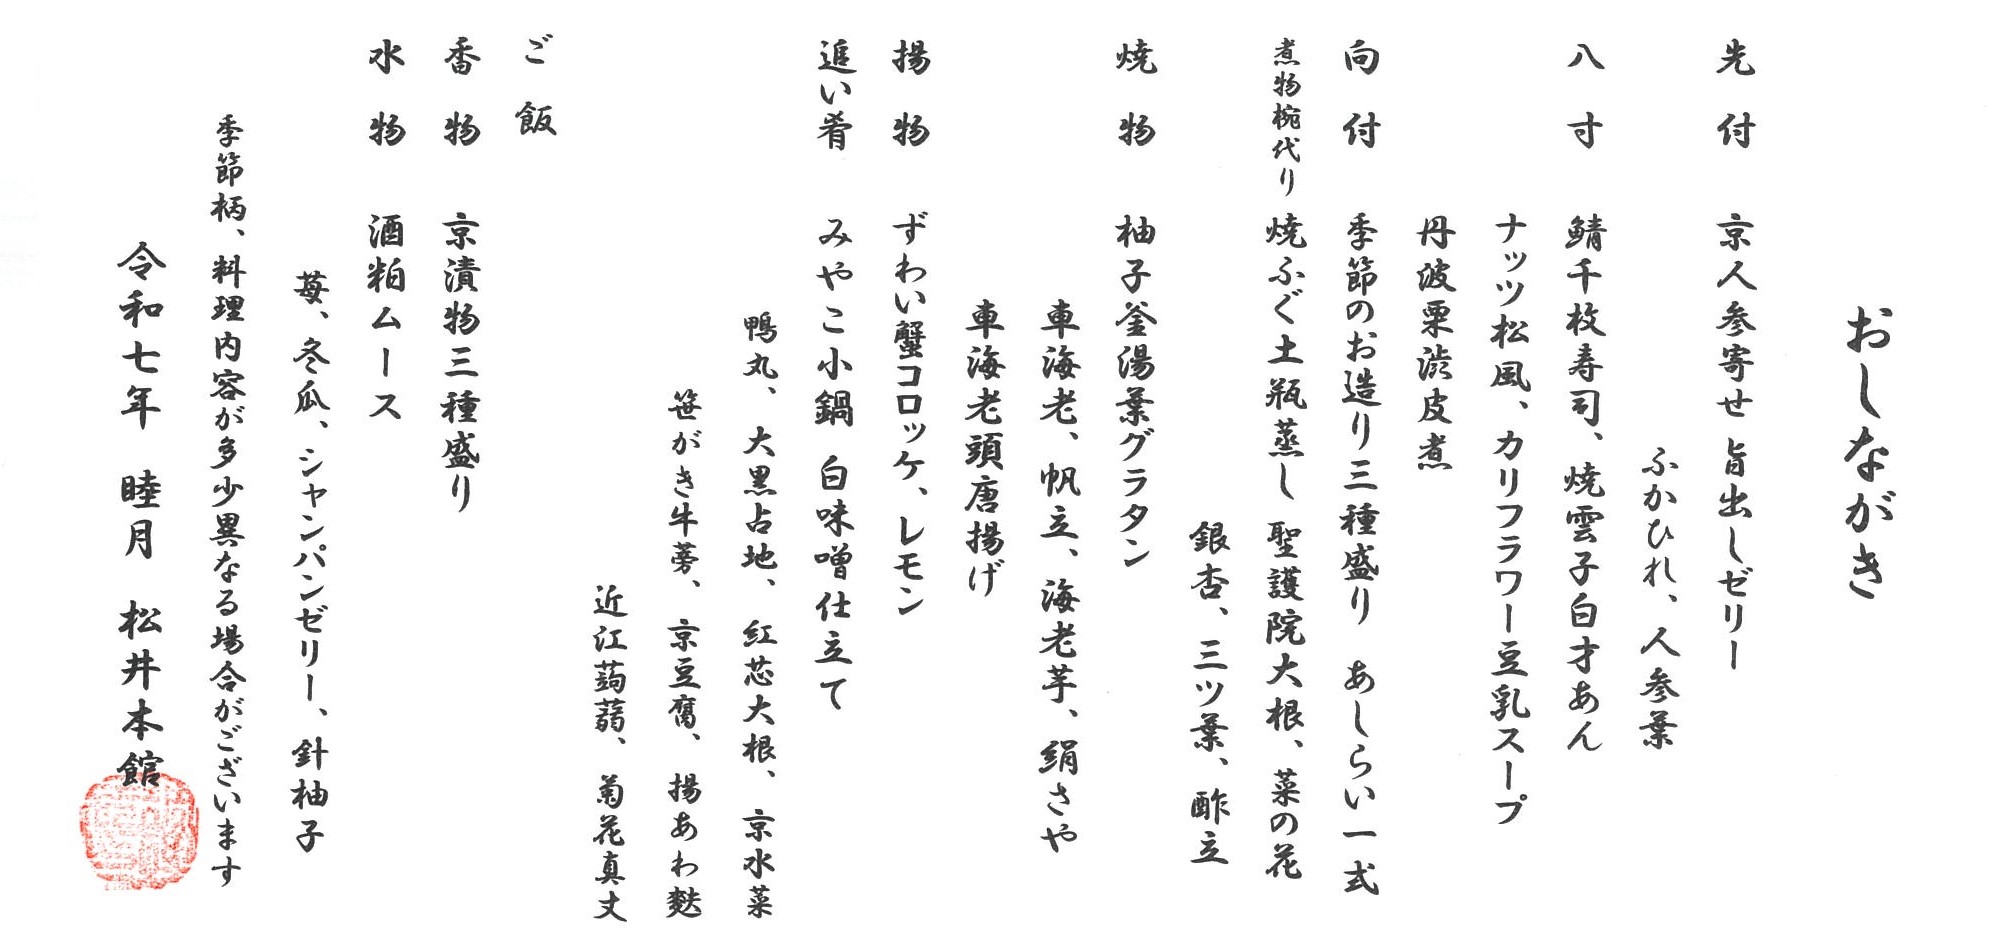 おしながき
先付 京人参寄せ 旨出しゼリー
ふかひれ、人参葉
八寸 鯖千枚寿司、焼雲子白才あん
ナッツ松風、カリフラワー豆乳スープ
丹波栗渋皮煮
向付 季節のお造り三種盛り あしらい一式
煮物椀代り 焼ふぐ土瓶蒸し 聖護院大根、菜の花
銀杏、三ツ葉、酢立
焼物 柚子釜湯葉グラタン
車海老、帆立、海老芋、絹さや
車海老頭唐揚げ
揚物 ずわい蟹コロッケ、レモン
追い肴 みやこ小鍋 白味噌仕立て
鴨丸、大黒占地、紅芯大根、京水菜
笹がき牛蒡、京豆腐、揚あわ麩
近江蒟蒻、菊花真丈
ご飯
香物 京漬物三種盛り
水物 酒粕ムース
苺、冬瓜、シャンパンゼリー、針柚子
季節柄、料理内容が多少異なる場合がございます
令和七年 睦月 松井本館